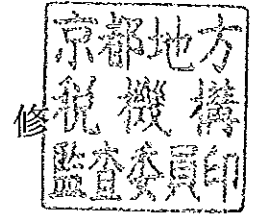 京都地方
税機構
監査委員印
修